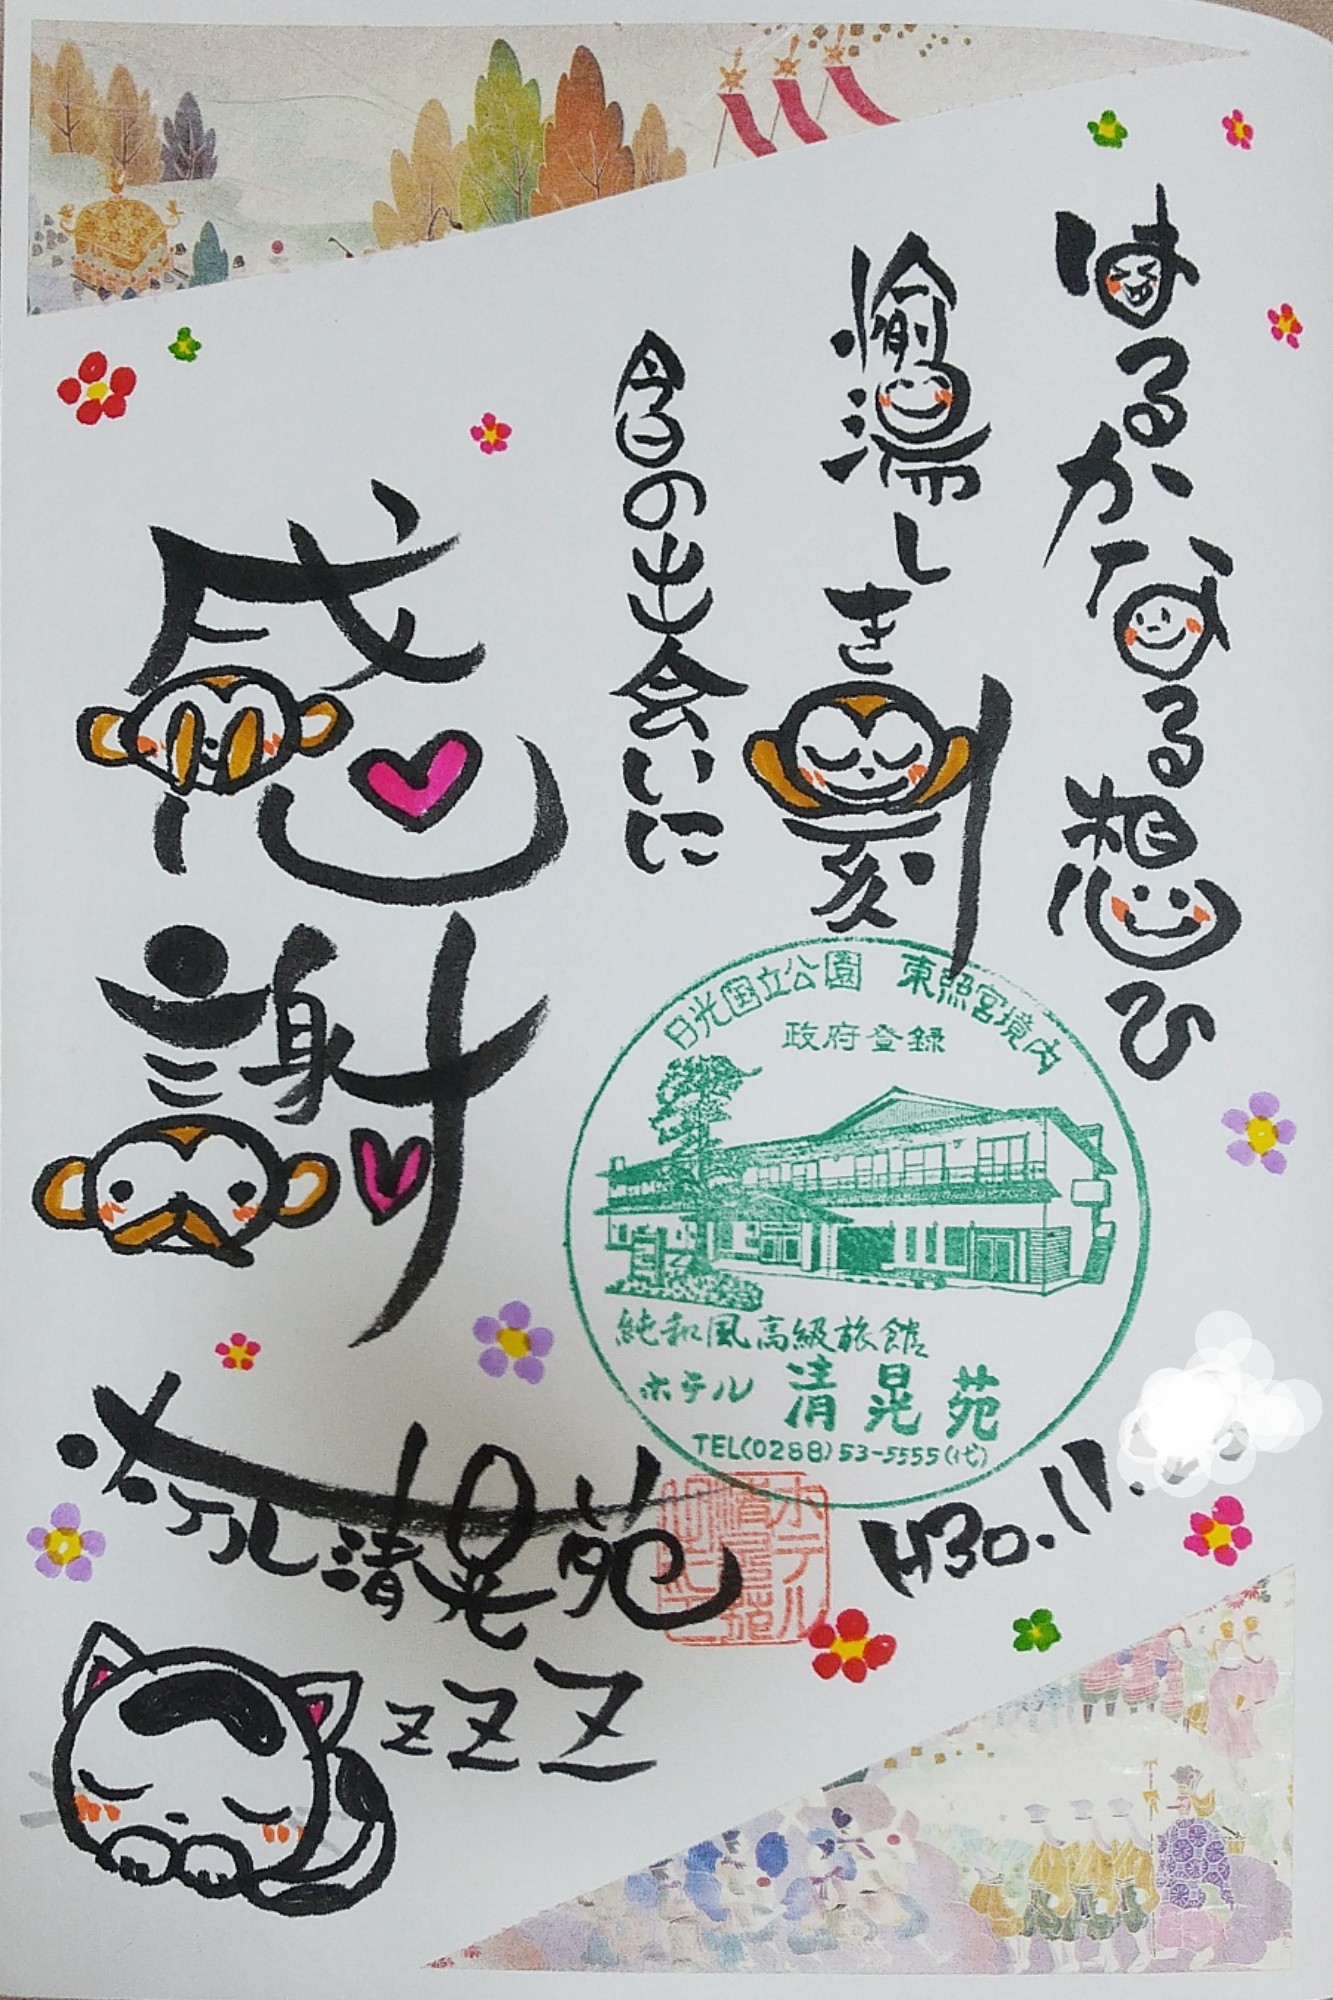 はるかなる想ひ
愉湯しき刻
今日の出会いに
感謝
日光国立公園 東照宮境内
政府登録
純和風高級旅館
ホテル 清晃苑
TEL(0288)53-5555(代)
ホテル清晃苑
H30.11.
ホテル
清晃苑
zZZ